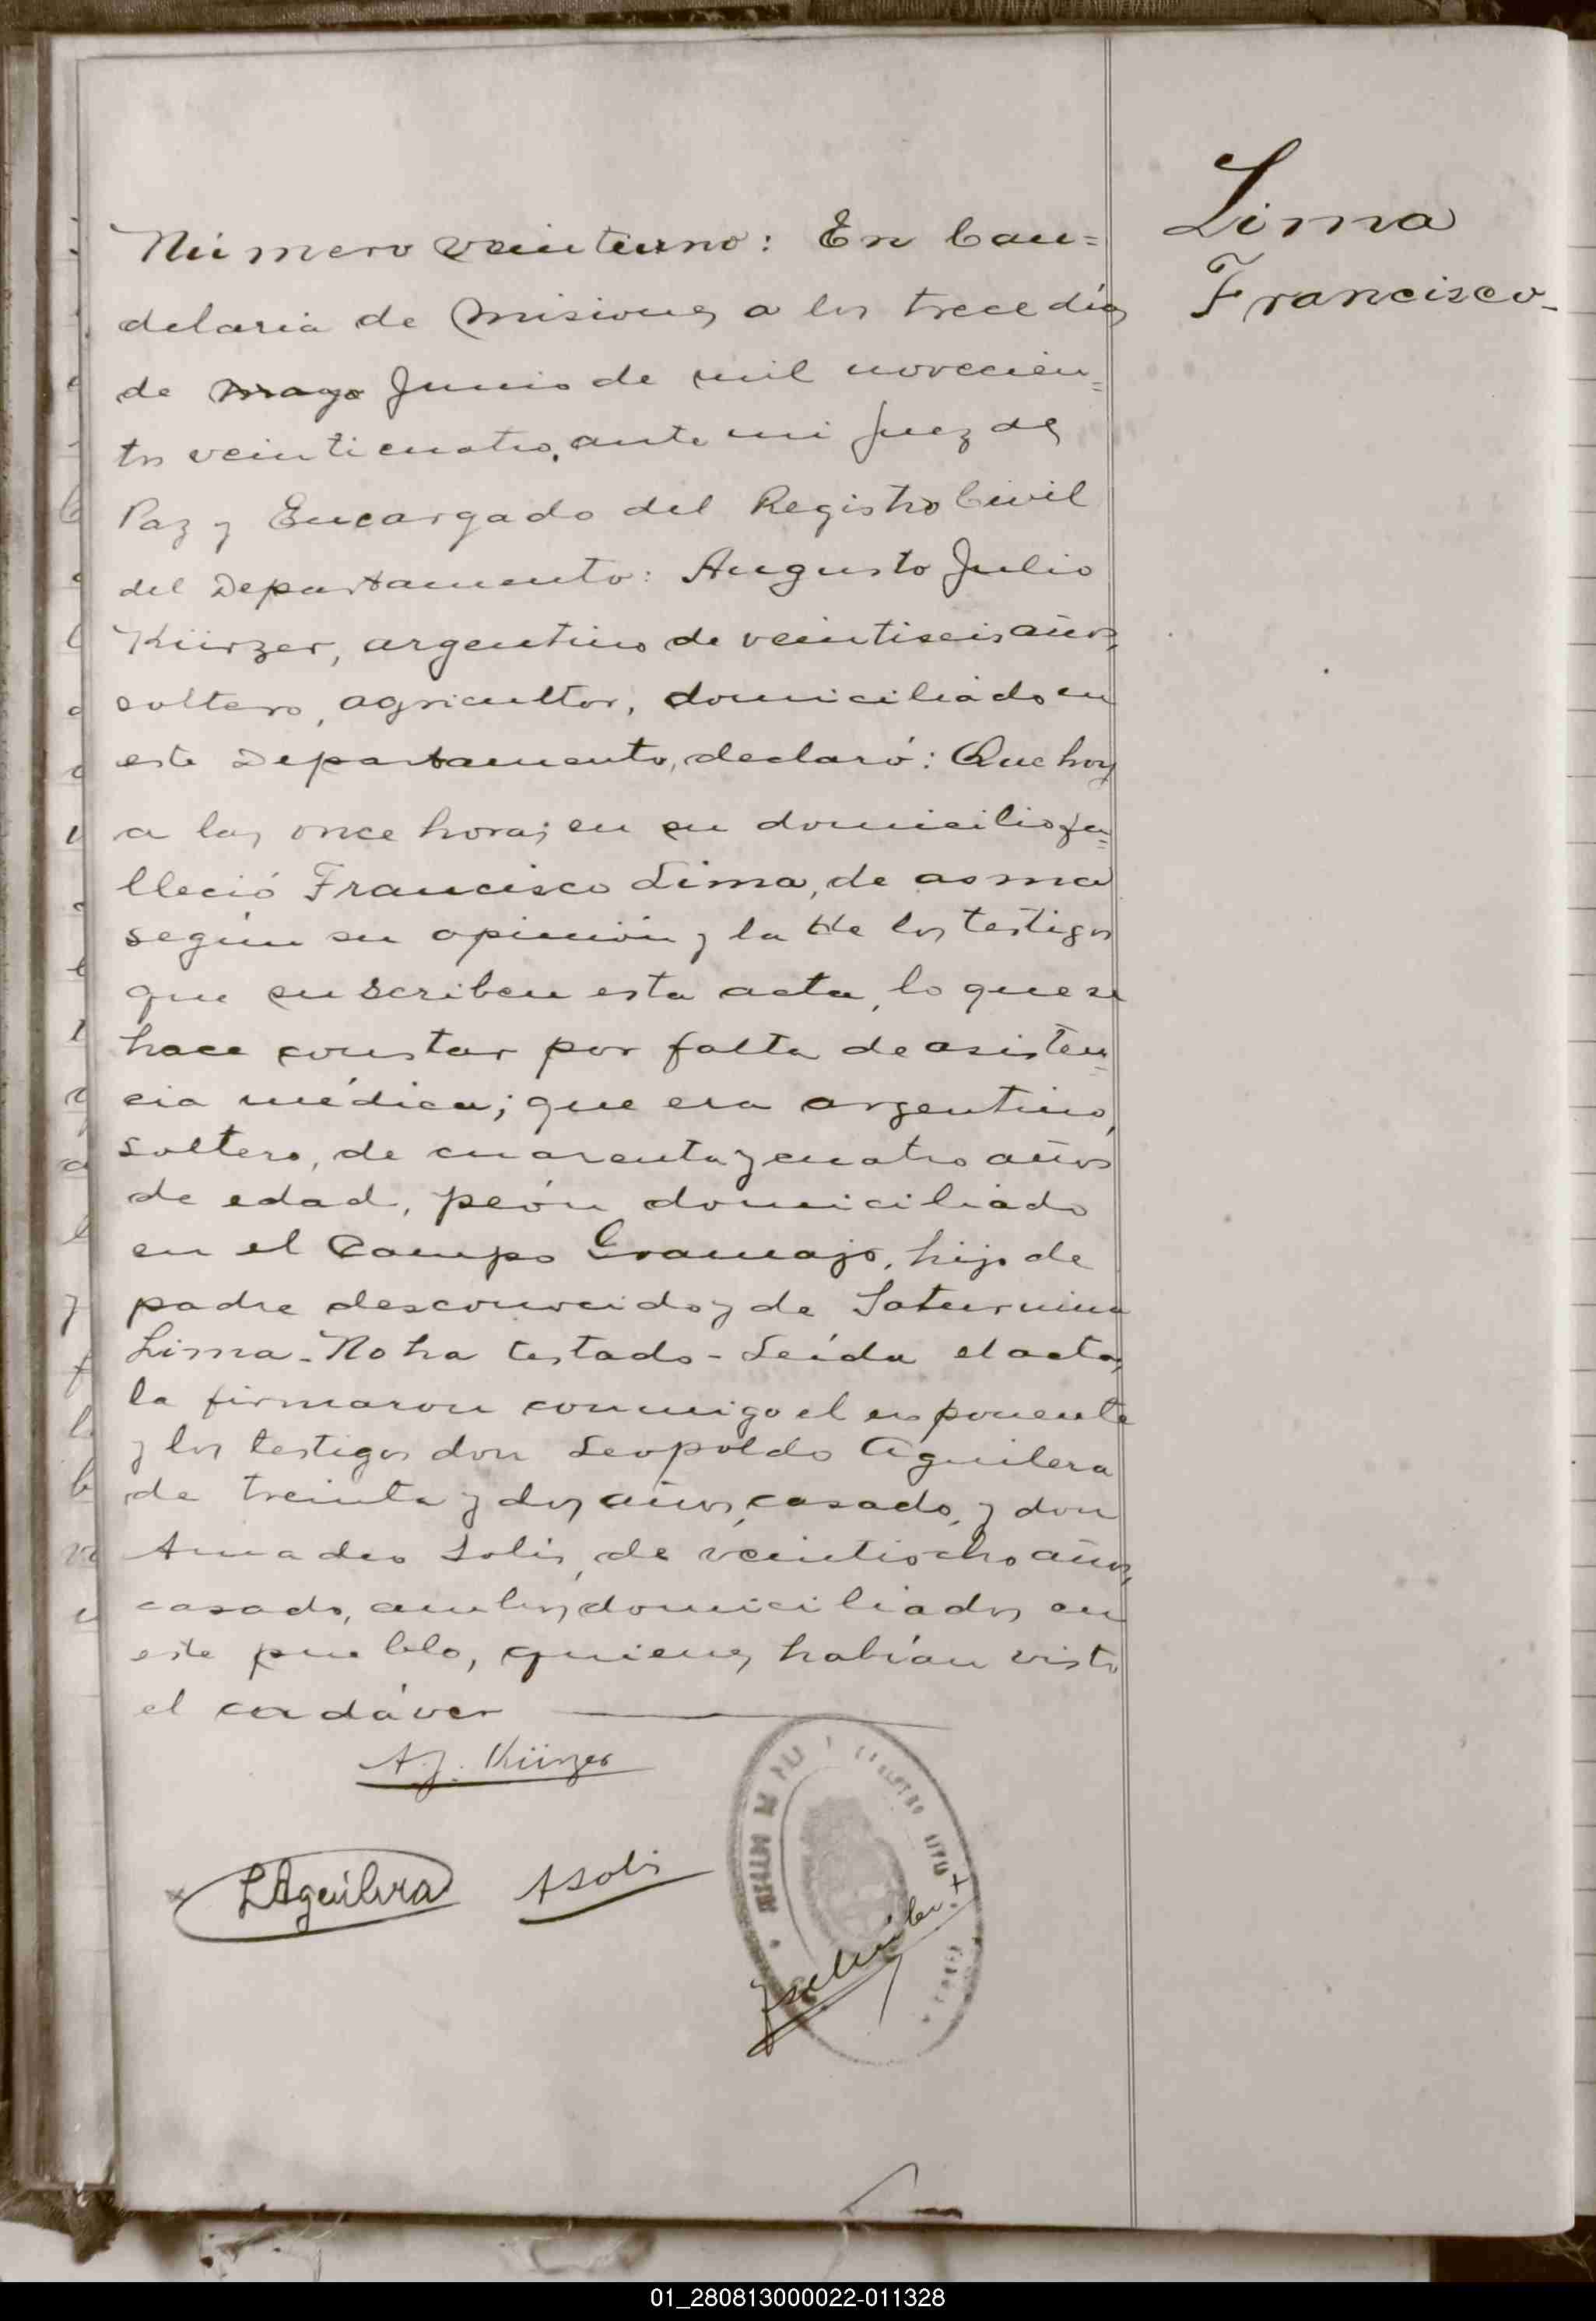 Lima
Francisco-
Número veintiuno: En Can=
delaria de Misiones a los trece días
de mayo Junio de mil novecien=
tos veinticuatro, ante mi Juez de
Paz y Encargado del Registro Civil
del Departamento: Augusto Julio
Kürzer, argentino de veintiseis años,
soltero, agricultor, domiciliado en
este Departamento, declaró: Que hoy
a las once horas en su domicilio fa=
lleció Francisco Lima, de asma
según su opinión y la de los testigos
que suscriben esta acta, lo que se
hace constar por falta de asisten=
cia médica; que era argentino,
soltero, de cuarenta y cuatro años
de edad, peón domiciliado
en el Campo Gramajo, hijo de
padre desconocido y de Saturnina
Lima - No ha testado - Leída el acta,
la firmaron conmigo el exponente
y los testigos don Leopoldo Aguilera
de treinta y dos años, casado, y don
Amadeo Solis, de veintiocho años,
casado, ambos domiciliados en
este pueblo, quienes habían visto
el cadáver
A. J. Kürzer
LAguilera ASolis
01_280813000022-011328